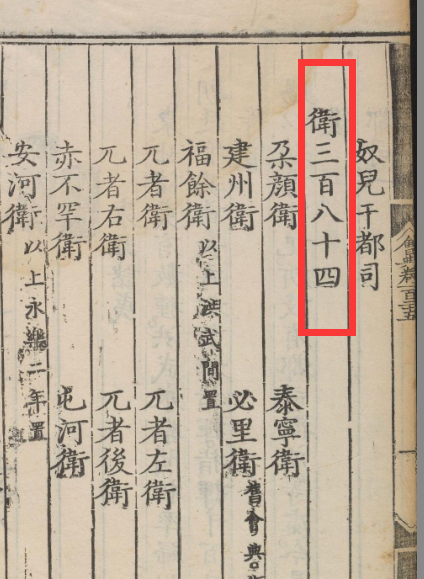 奴兒干都司
衛三百八十四
朵顏衛　泰寧衛
建州衛　必里衛 舊會典
福餘衛 以上洪武間置
兀者衛　兀者左衛
兀者右衛　兀者後衛
赤不罕衛　屯河衛
安河衛 以上永樂二年置